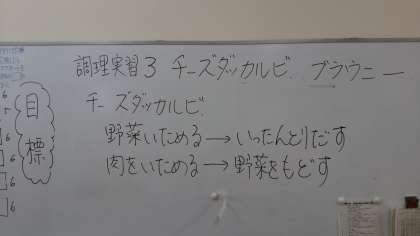 調理実習3 チーズダッカルビ. ブラウニー
チーズダッカルビ.
野菜いためる→いったんとりだす
肉をいためる→野菜をもどす
目標
6
6
6
6
6